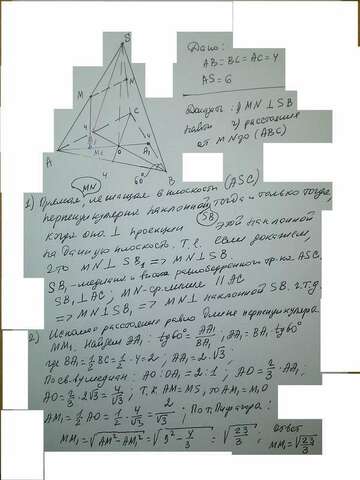 S
M
N
C
A
M₁
O
A₁
B
4
4
60°
Дано:
AB=BC=AC=4
AS=6
1) MN⊥SB
2) расстояние
от MN до (ABC)
MN
1) Прямая, лежащая в плоскости (ASC)
перпендикулярна наклонной тогда и только тогда,
когда она ⊥ проекции (SB) этой наклонной
на данную плоскость. Т.е. если докажем,
что MN⊥SB₁ => MN⊥SB.
SB₁-медиана и равнобедренного тр-ка ASC.
SB₁⊥AC; MN-ср. линия ||AC
=> MN⊥SB₁ => MN⊥ наклонной SB. ч.т.д.
2) Искомое расстояние равно длине перпендикуляра
MM₁. Найдем AA₁: tg60°=AA₁/BA₁; AA₁=BA₁·tg60°
где BA₁=1/2 BC=1/2·4=2; AA₁=2·√3;
По св. медиан: AO:OA₁=2:1; AO=2/3·AA₁
AO=2/3·2√3=4/√3; Т.к. AM=MS, то AM₁=M₁O
AM₁=1/2 AO=1/2·4/√3=2/√3; По т. Пифагора:
MM₁=√AM²-AM₁²=√3²-4/3=√23/3; Ответ
MM₁=√23/3